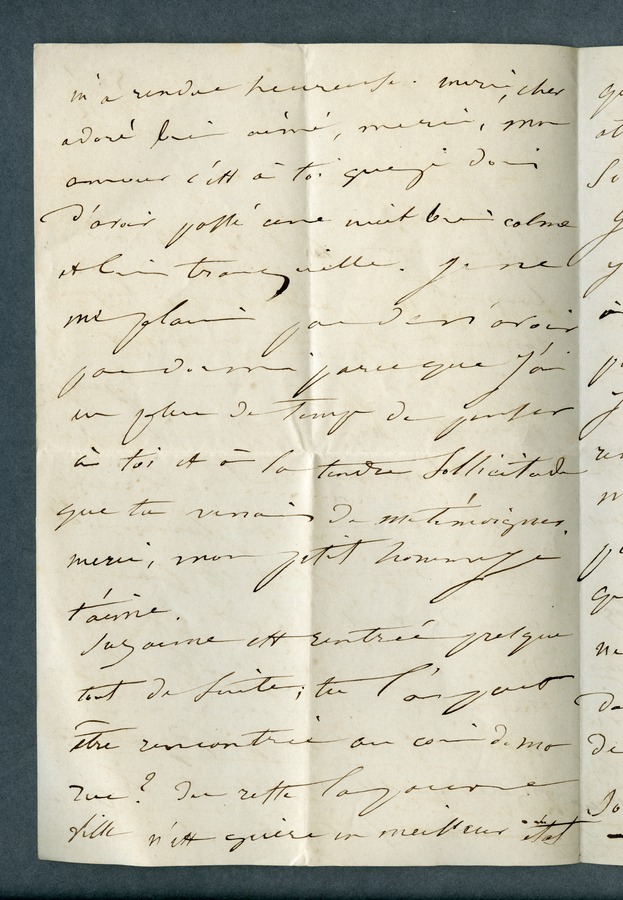 m'a rendue heureuse. merci, cher
adoré bien aimé, merci, mon
amour c'est à toi que je dois
d'avoir passé une nuit bien calme
et bien tranquille. Je ne
me plains pas de n'avoir
pas dormi parce que j'ai
eu plus de temps de penser
à toi et à la tendre sollicitude
que tu venais de me témoigner.
merci, mon petit homme je
t'aime.
Suzanne est rentrée presque
tout de suite; tu l'as peut
être rencontrée au coin de mo
rue? Du reste la pauvre
fille n'est guère en meilleur état